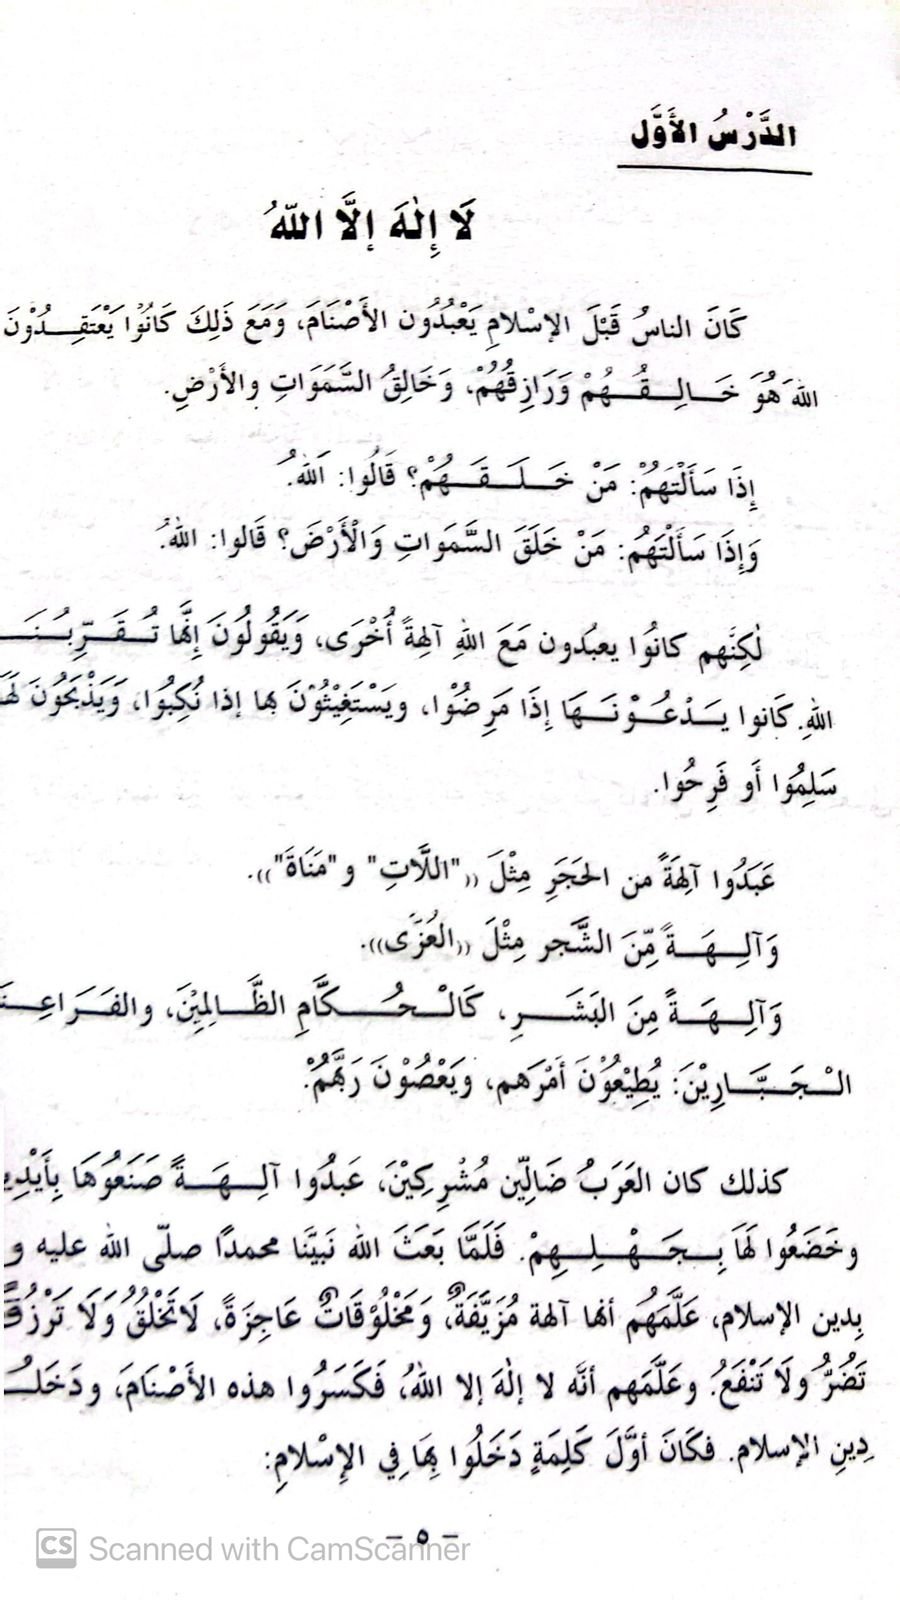 الدَّرْسُ الأَوَّل
لَا إِلٰهَ إلَّا اللّهُ
كَانَ الناسُ قَبْلَ الإسْلامِ يَعْبُدُون الأَصْنَامَ، وَمَعَ ذَلِكَ كَانُوْا يَعْتَقِدُوْنَ
اللهَ هُوَ خَالِقُهُمْ وَرَازِقُهُمْ، وَخَالِقُ السَّمَوَاتِ والأَرْضِ.
إِذَا سَأَلْتَهُمْ: مَنْ خَلَقَهُمْ؟ قَالُوا: اَللهُ.
وَإِذَا سَأَلْتَهُم: مَنْ خَلَقَ السَّمَوَاتِ وَالْأَرْضَ؟ قَالوا: اللهُ.
لٰكِنَّهم كانُوا يعبُدون مَعَ اللهِ آلهةً أُخْرَى، وَيَقُولُونَ إِنَّها
اللهِ. كَانوا يَدْعُوْنَهَا إِذَا مَرِضُوْا، ويَسْتَغِيْثُوْنَ بها إذا نُكِبُوا، وَيَذْبَحُونَ
سَلِمُوا أو فَرِحُوا.
عَبَدُوا آلِهَةً من الحَجَرِ مِثْلَ (("اللَّاتِ" و "مَنَاةَ")).
وَآلِهَةً مِّنَ الشَّجر مِثْلَ ((العُزَّى)).
وَآلِهَةً مِنَ البَشَرِ، كَالْحُكَّامِ الظَّالِمِيْنَ، والفَرَاعِنَ
الْجَبَّارِيْنَ: يُطِيْعُوْنَ أَمْرَهم، ويَعْصُوْنَ رَبَّهُمْ.
كذلك كان العَرَبُ ضَالِّين مُشْرِكِيْنَ، عَبدُوا آلِهَةً صَنَعُوْهَا بِأَيْدِي
وخَضَعُوا لَهَا بِجَهْلِهِمْ. فَلَمَّا بَعَثَ الله نَبِيَّنَا محمدًا صلّى الله عليه و
بِدين الإسلام، عَلَّمَهُم أنها آلهة مُزَيَّفَةٌ، وَمَخْلُوْقَاتٌ عَاجِزَةً، لَا تَخْلُقُ وَلَا تَرْزُقُ
تَضُرُّ ولَا تَنْفَعُ. وعَلَّمَهم أنَّه لا إلٰهَ إلا اللهُ، فَكَسَرُوا هذه الأَصْنَامَ،
دِينِ الإسلام. فكَانَ أوَّلَ كَلِمَةٍ دَخَلُوا بِهَا فِي الإِسْلامِ:
– ٥ –
CS Scanned with CamScanner